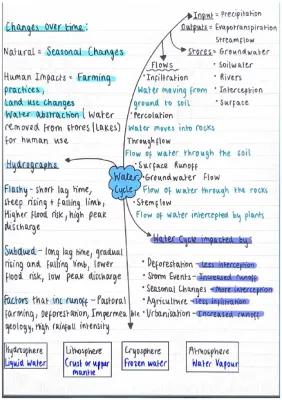 Changes over time:
Natural = Seasonal Changes
Human Impacts = Farming
practices,
Land use changes
Water abstraction (Water
removed from stores (Lakes)
for human use
Hydrographs
Flashy - short lag time,
steep rising + falling limb,
Higher flood risk, high peak
discharge
Subdued - long lag time, gradual
rising and falling limb, lower
flood risk, low peak discharge
Factors that inc runoff - Pastoral
farming, deforestation, Impermeable
geology, high rainfall intensity
Input = Precipitation
Outputs = Evapotranspiration
Streamflow
Stores = Groundwater
• Soilwater
• Rivers
• Interception
• Surface
Flows
• Infiltration
Water moving from
ground to soil
• Percolation
Water moves into rocks
Throughflow
Flow of water through the soil
• Surface Runoff
• Groundwater Flow
Flow of water through the rocks
• Stemflow
Flow of water intercepted by plants
Water
Cycle
Water Cycle impacted by:
• Deforestation - Less interception
• Storm Events - Increased runoff
• Seasonal Changes - More interception
• Agriculture - Less infiltration
• Urbanisation - Increased runoff
Hydrosphere
Liquid Water
Lithosphere
Crust or upper
mantle
Cryosphere
Frozen water
Atmosphere
Water Vapour